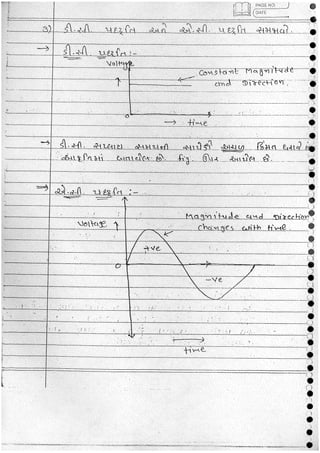 PAGE NO.
DATE
3) ડી.સી. પદ્ધતિ અને એ.સી. પદ્ધતિ સમજાવો.
→ ડી.સી. પદ્ધતિ :-
Voltage
↑
Constant Magnitude
and Direction.
0
→ time
→ ડી.સી. સપ્લાય સમયની સાપેક્ષે અચળ કિંમત
આકૃતિમાં છે. fig. છે.
→ એ.સી. પદ્ધતિ :-
Magnitude and Direction
Voltage ↑ changes with time.
+ve
0
-ve
→
time